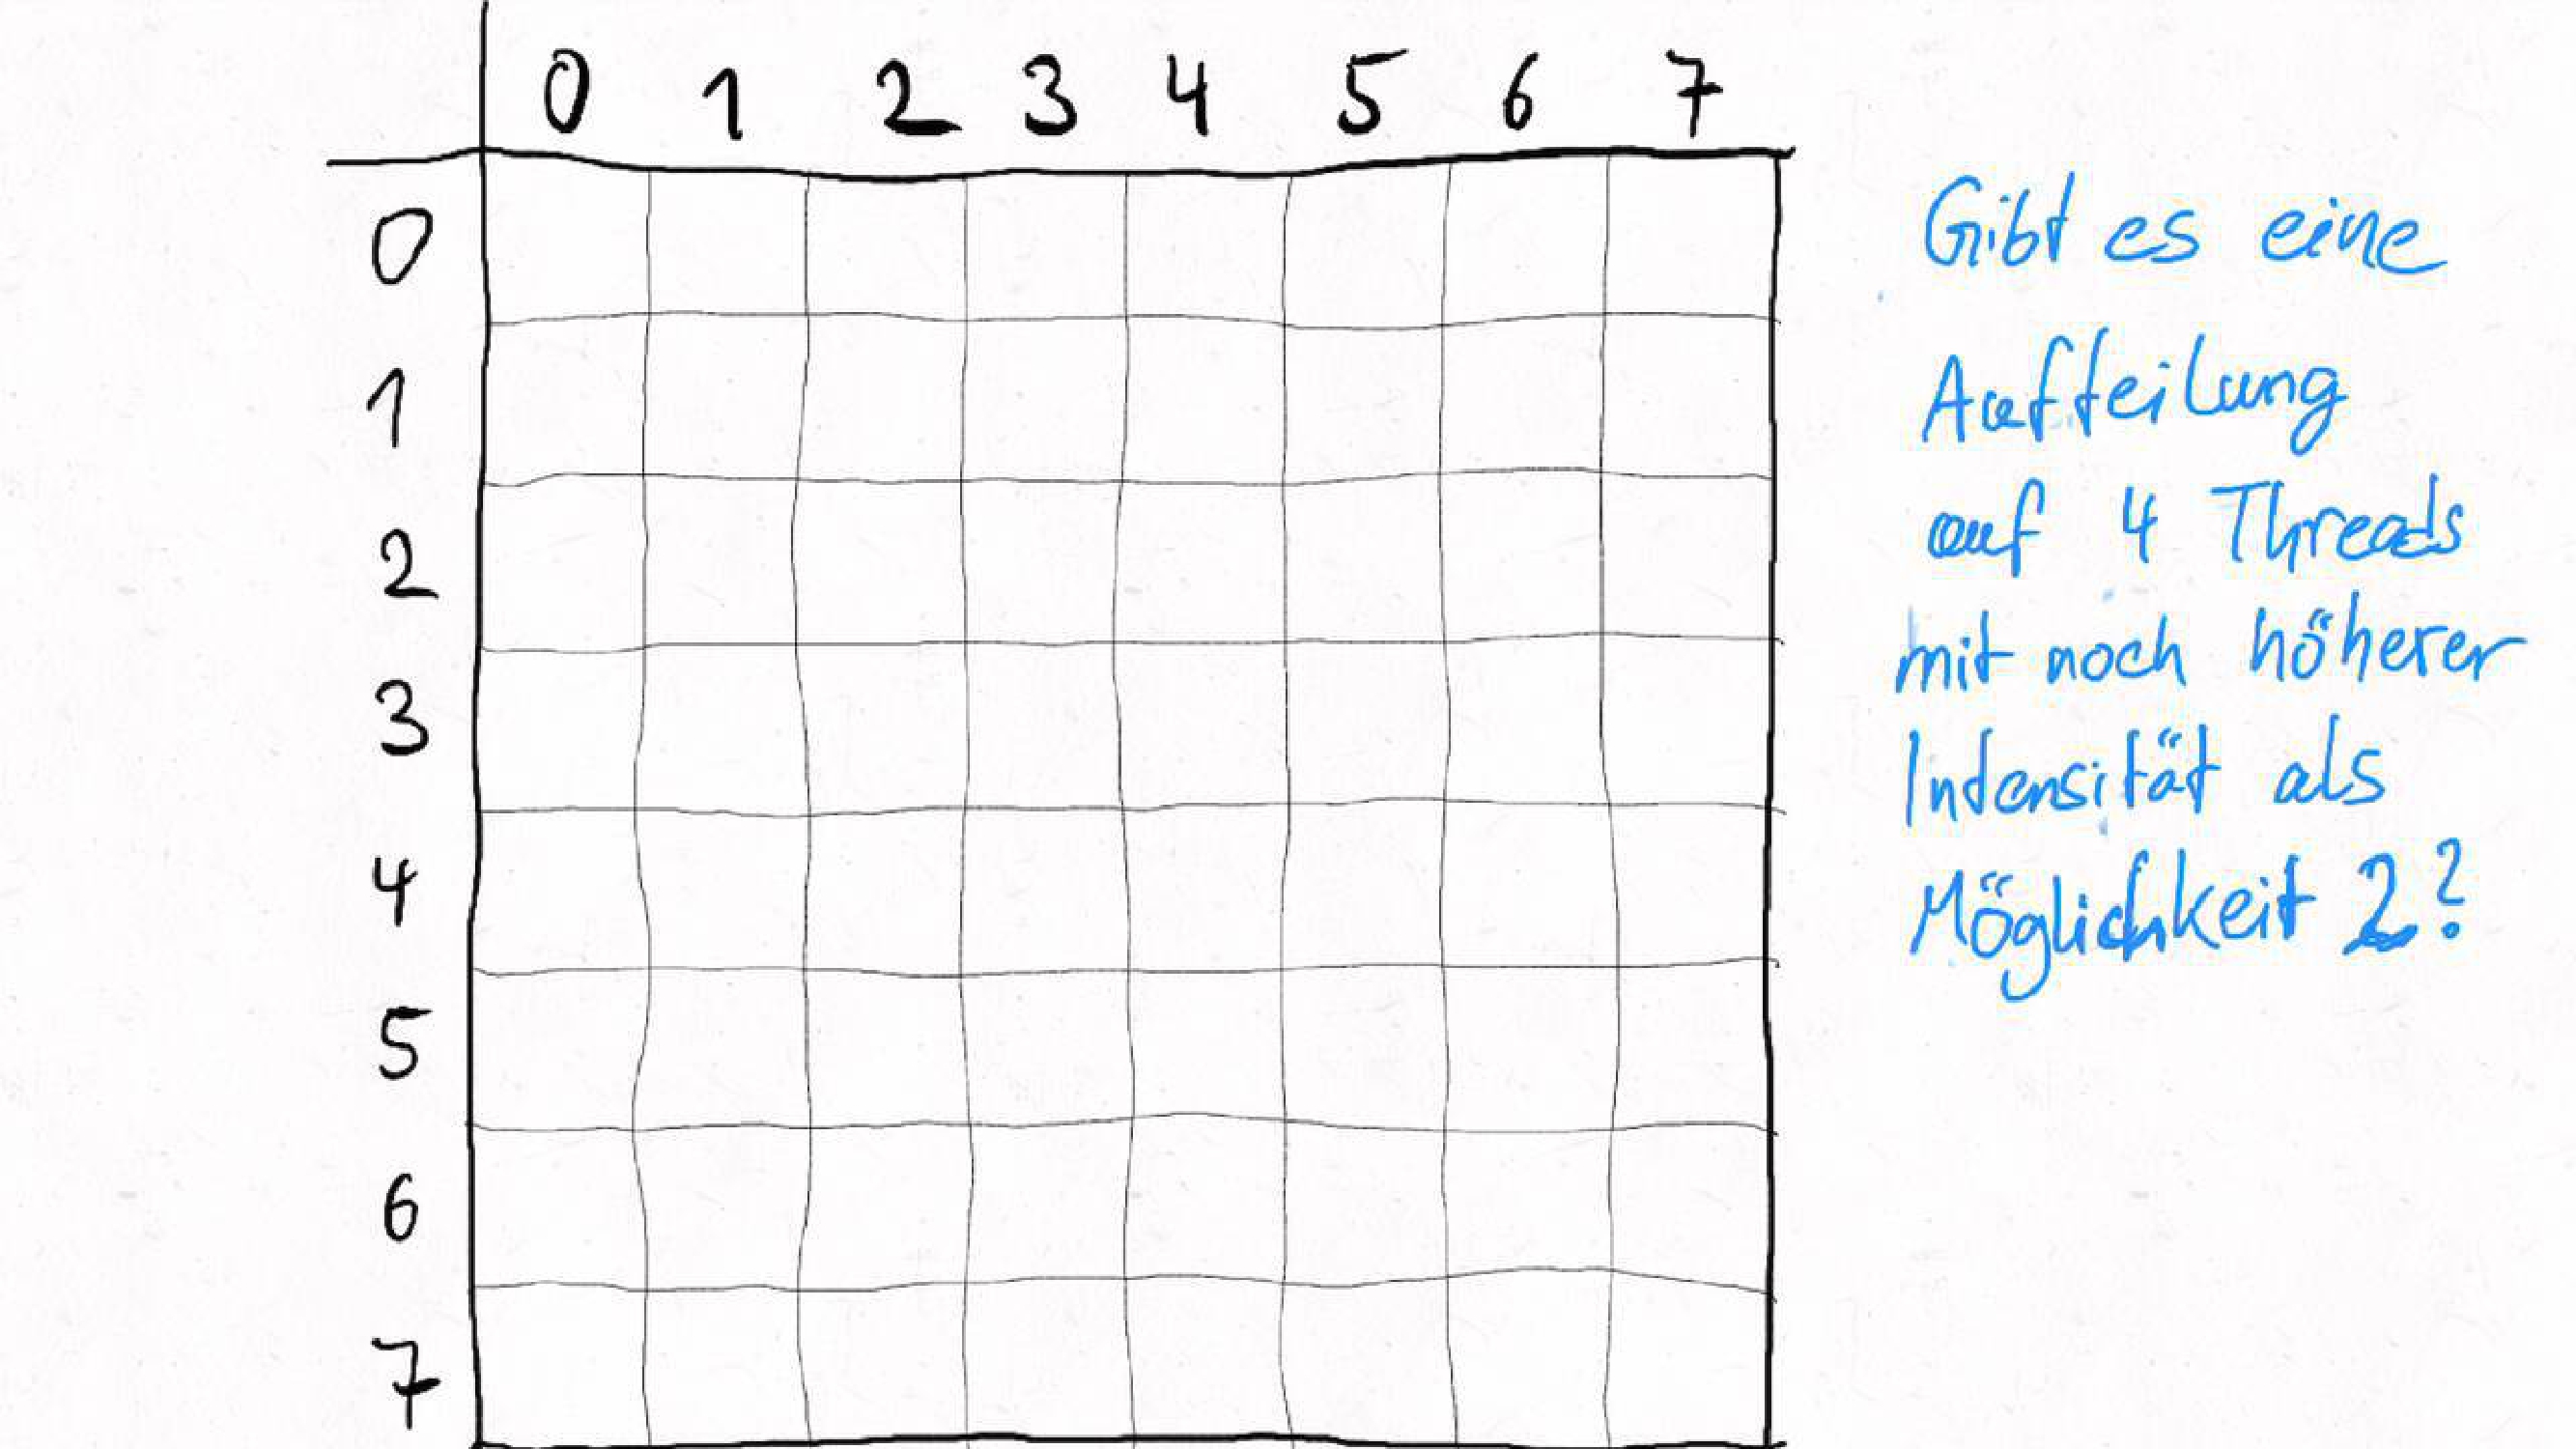 0 1 2 3 4 5 6 7
0
1
2
3
4
5
6
7
Gibt es eine
Aufteilung
auf 4 Threads
mit noch höherer
Intensität als
Möglichkeit 2?